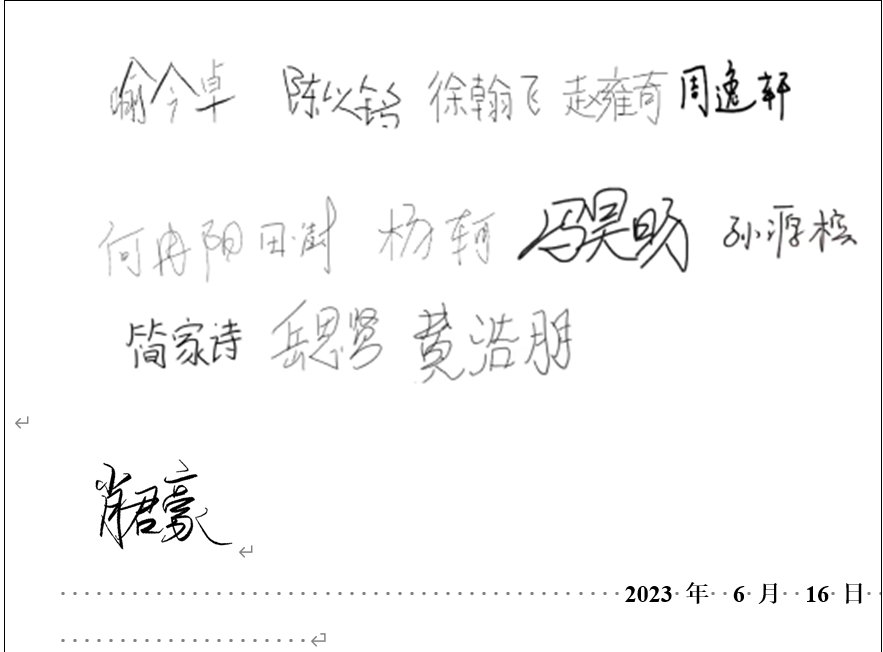 喻今卓 陈以铭 徐翰飞 赵雍奇 周逸轩
何冉阳 田澍 杨轲 冯昊旸 孙源槟
简家诗 岳思贤 黄浩朋
肖君豪
2023 年 6 月 16 日